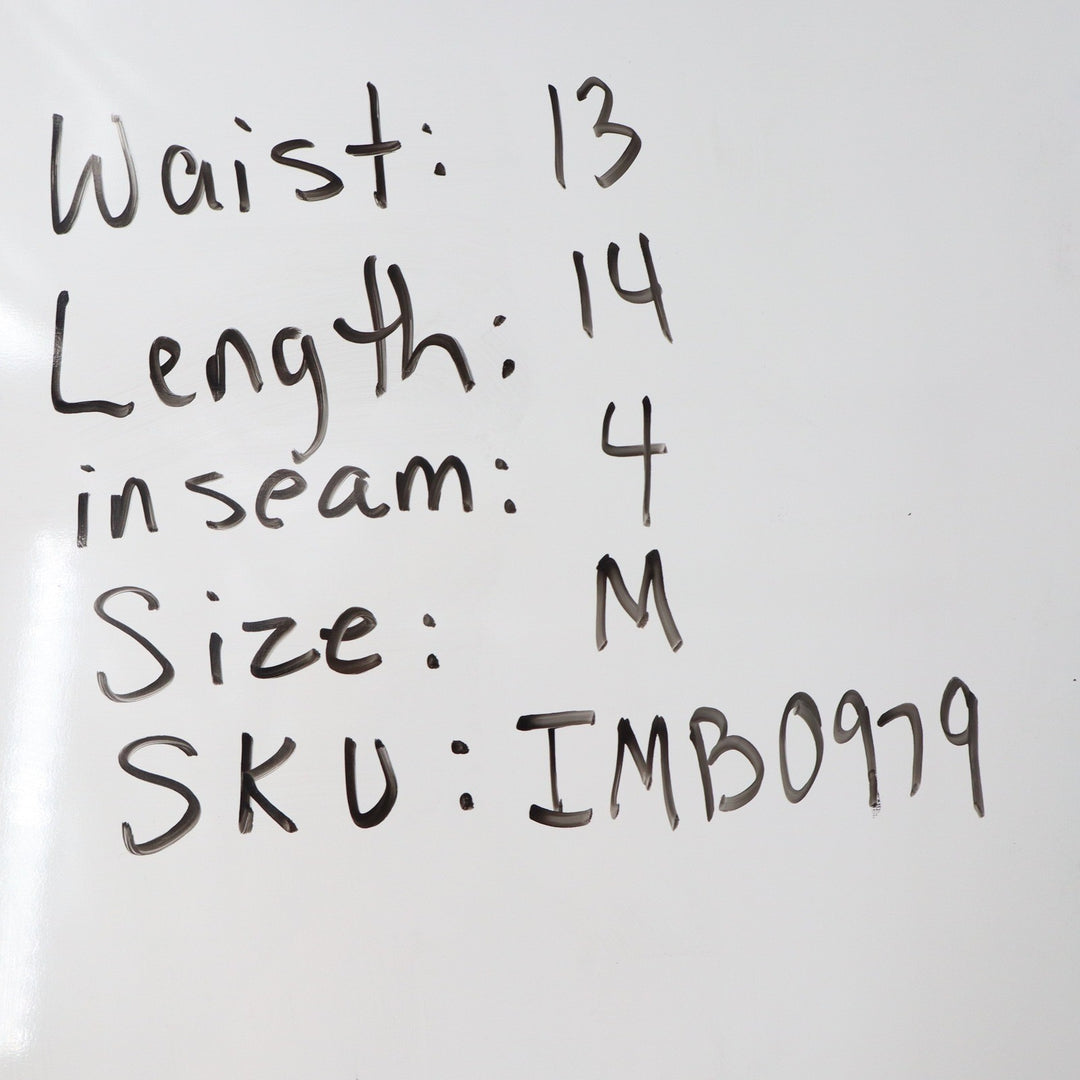 Waist: 13
Length: 14
inseam: 4
Size: M
SKU: IMB0979